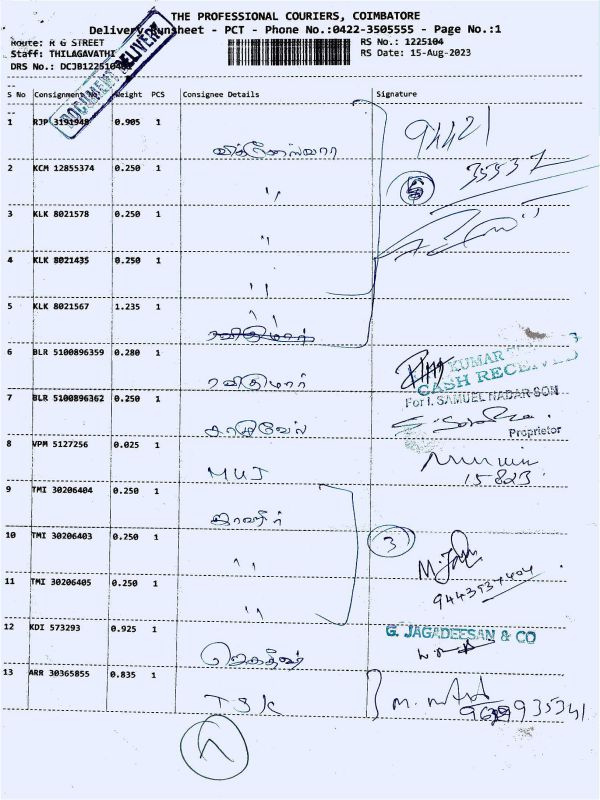 THE PROFESSIONAL COURIERS, COIMBATORE
Delivery Runsheet - PCT - Phone No.:0422-3505555 - Page No.:1
Route: R G STREET RS No.: 1225104
Staff: THILAGAVATHI RS Date: 15-Aug-2023
DRS No.: DCJB1225104
DOCUMENT DELIVERY
S No Consignment No. Weight PCS Consignee Details Signature
1 RJP 3191948 0.905 1
2 KCM 12855374 0.250 1 " 5
3 KLK 8021578 0.250 1 "
4 KLK 8021435 0.250 1 "
5 KLK 8021567 1.235 1 "
6 BLR 5100896359 0.280 1 ரவிகுமார்
CASH RECEIVED
7 BLR 5100896362 0.250 1
For I. SAMUEL NADAR SON
Proprietor
8 VPM 5127256 0.025 1 MUJ
15823
9 TMI 30206404 0.250 1
10 TMI 30206403 0.250 1 " 3
11 TMI 30206405 0.250 1 "
9443537404
12 KDI 573293 0.925 1
G. JAGADEESAN & CO
13 ARR 30365855 0.835 1 TSK